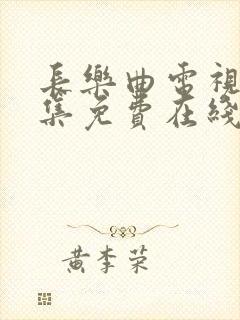 長樂曲電視
集免費在綫
黄李荣